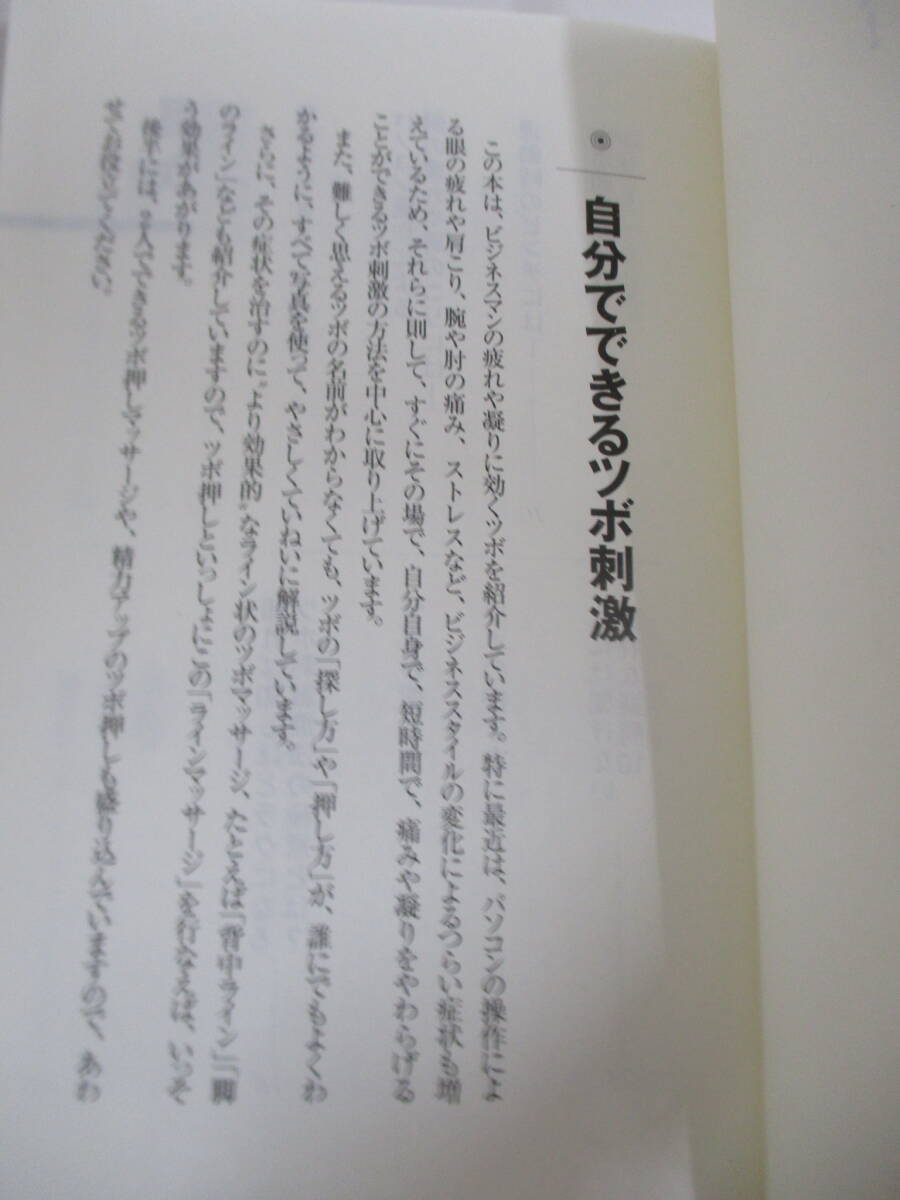 自分でできるツボ刺激
この本は、ビジネスマンの疲れや凝りに効くツボを紹介しています。特に最近は、パソコンの操作によ
る眼の疲れや肩こり、腕や肘の痛み、ストレスなど、ビジネススタイルの変化によるつらい症状も増
えているため、それらに則して、すぐにその場で、自分自身で、短時間で、痛みや凝りをやわらげる
ことができるツボ刺激の方法を中心に取り上げています。
また、難しく思えるツボの名前がわからなくても、ツボの「探し方」や「押し方」が、誰にでもよくわ
かるように、すべて写真を使って、やさしくていねいに解説しています。
さらに、その症状を治すのに"より効果的"なライン状のツボマッサージ、たとえば「背中ライン」「脚
のライン」なども紹介していますので、ツボ押しといっしょにこの「ラインマッサージ」を行なえば、いっそ
う効果があがります。
後半には、2人でできるツボ押しマッサージや、精力アップのツボ押しも盛り込んでいますので、あわ
せてお役立てください。